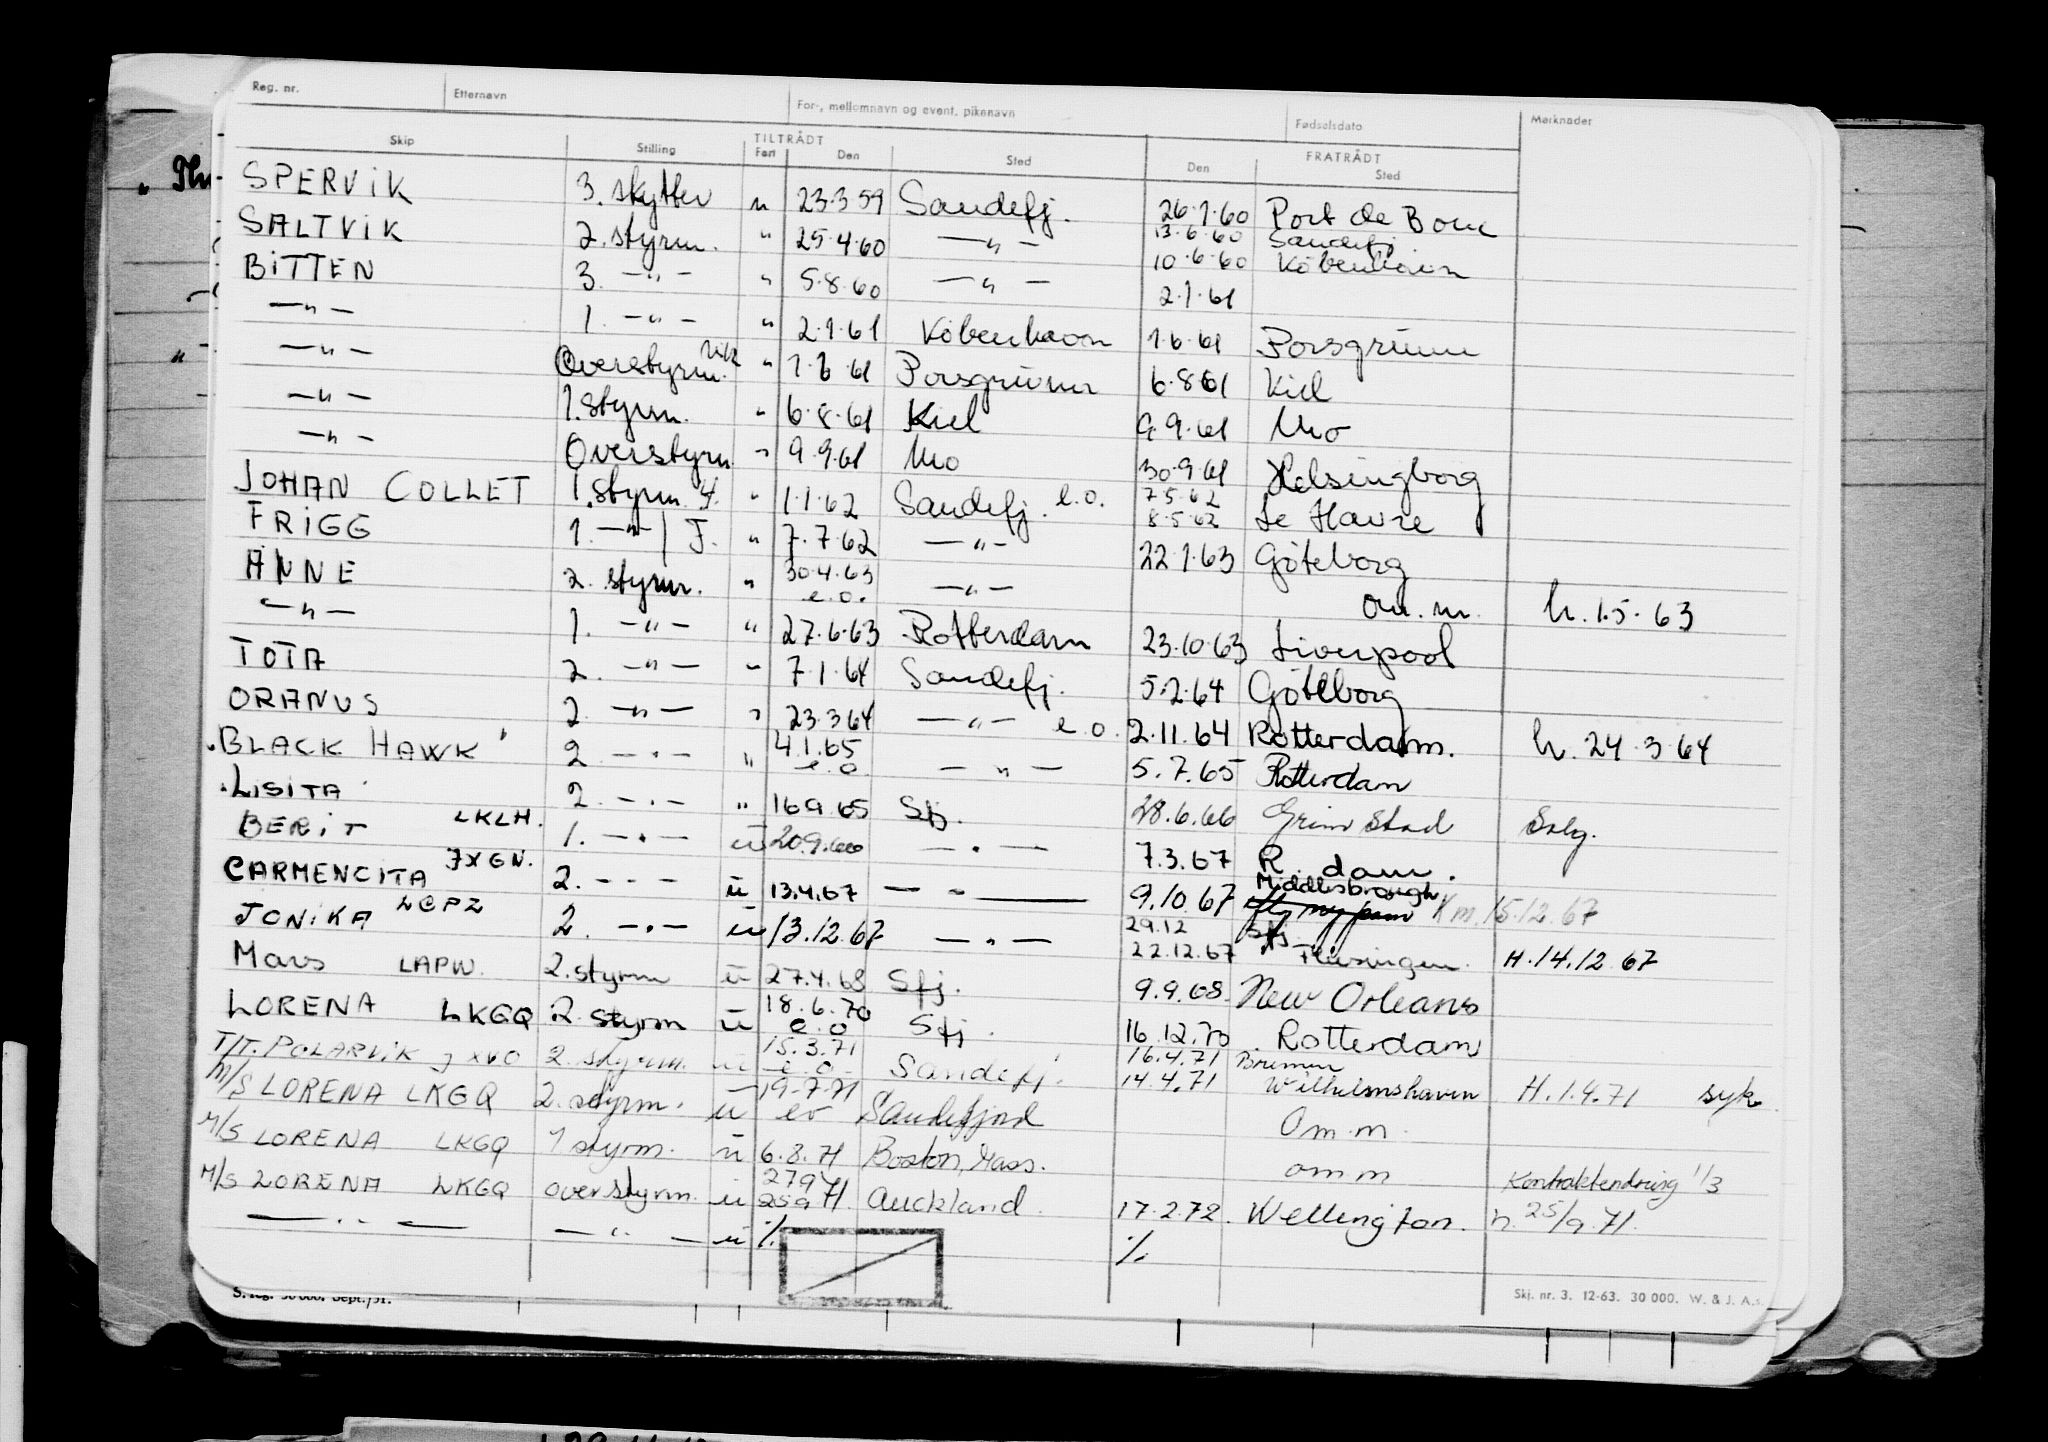 Reg. nr. Etternavn For-, mellomnavn og event. pikenavn Fødselsdato Merknader
TILTRÅDT FRATRÅDT
Skip Stilling Fart Den Sted Den Sted
SPERVIK 3. skytter u 23.3 59 Sandefj. 26.1.60 Port de Bouc
13.6.60 Sandefj
SALTVIK 2. styrm. " 25.4.60 —"— 10.6.60 Köbenhavn
BITTEN 3. —"— " 5.8.60 —"— 2.1.61
—"— 1. —"— " 2.1.61 Köbenhavn 1.6.61 Porsgrunn
—"— Overstyrm. vik " 1.6.61 Porsgrunn 6.8.61 Kiel
—"— 1. styrm. " 6.8.61 Kiel 9.9.61 Mo
—"— Overstyrm " 9.9.61 Mo 30.9.61 Helsingborg
7.5.62
JOHAN COLLET 1. styrm. " 1.1.62 Sandefj. e.o. 8.5.62 Le Havre
FRIGG 1. —"— J. " 7.7.62 —"— 22.1.63 Göteborg
ANNE 2. styrm. " 30.4.63 e.o. —"— om.m. h. 1.5.63
—"— 1. —"— " 27.6.63 Rotterdam 23.10.63 Liverpool
TOTA 2. —"— " 7.1.64 Sandefj. 5.2.64 Göteborg
ORANUS 2. —"— " 23.3.64 —"— e.o. 2.11.64 Rotterdam. h. 24.3.64
"BLACK HAWK" 2 —"— " 4.1.65 e.o. —"— 5.7.65 Rotterdam
"LISITA" 2. —"— " 16.9.65 Sfj. 28.6.66 Grimstad Solg.
BERIT LKLH. 1. —"— u 20.9.66 —"— 7.3.67 R. dam.
CARMENCITA JXGN. 2. —"— u 13.4.67 —"— 9.10.67 Middlesbrough Km. 15.12.67
29.12 Sfj
JONIKA LCPZ 2. —"— u 13.12.67 —"— 22.12.67 H. 14.12.67
Mars LAPW. 2. styrm u 27.4.68 Sfj. 9.9.68 New Orleans
LORENA LKGQ 2. styrm u 18.6.70 e.o Sfj. 16.12.70 Rotterdam
16.4.71 Bremen
T/T. POLARVIK JXVO 2. styrm. u 15.3.71 e.o. Sandefj. 14.4.71 Wilhelmshaven H. 1.4.71 syk
M/S LORENA LKGQ 2. styrm. u 19.7.71 eo Sandefjord Om.m.
M/S LORENA LKGQ 1 styrm. u 6.8.71 Boston, Mass. om m Kontraktendring 1/3
M/S LORENA LKGQ overstyrm. u 27971 259 71. Auckland. 17.2.72. Wellington. h. 25/9.71.
—"— —"— u %. %.
S. reg. 30 000. Sept./51.
Skj. nr. 3. 12-63. 30 000. W. & J. A.s.